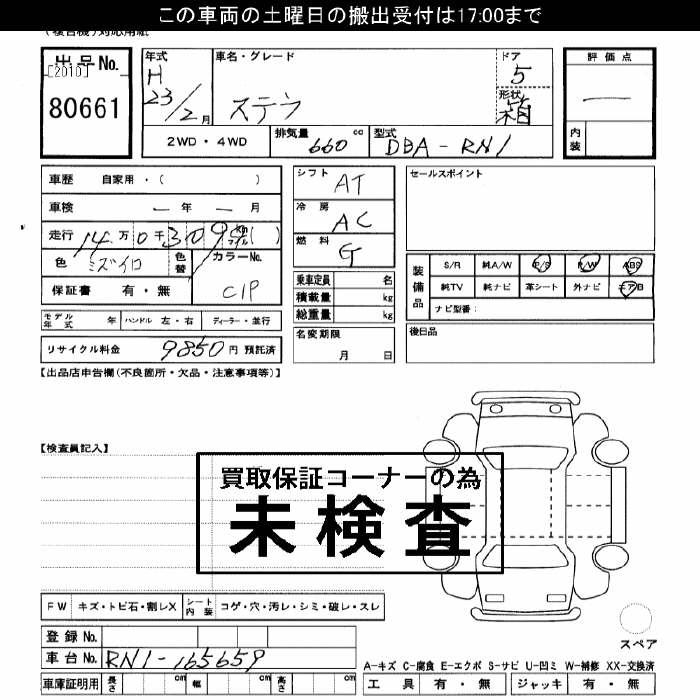 この車両の土曜日の搬出受付は17:00まで
(複合機)対応用紙
出品No.
[2010]
80661
年式 H 23/2月
車名・グレード
ステラ
ドア 5
形状 箱
2WD・4WD
排気量 660 cc
型式 DBA-RN1
評価点
—
内装
車歴 自家用・( )
車検 — 年 — 月
走行 14万0千309 km マイル ( )
色 ミズイロ
色替
カラーNo. C1P
保証書 有・無
シフト AT
冷房 AC
燃料 G
乗車定員 名
積載量 kg
総重量 kg
セールスポイント
装備品
S/R 純A/W P/S P/W ABS
純TV 純ナビ 革シート 外ナビ エアB
ナビ型番:
モデル年式 年 ハンドル 左・右 ディーラー・並行
名変期限 月 日
後日品
リサイクル料金 9850円 預託済
【出品店申告欄(不良箇所・欠品・注意事項等)】
【検査員記入】
買取保証コーナーの為
未検査
FW キズ・トビ石・割レX シート内装 コゲ・穴・汚レ・シミ・破レ・スレ
登録No.
車台No. RN1-165659
車庫証明用 長さ cm 幅 cm 高さ cm
スペア
A-キズ C-腐食 E-エクボ S-サビ U-凹ミ W-補修 XX-交換済
工具 有・無 ジャッキ 有・無